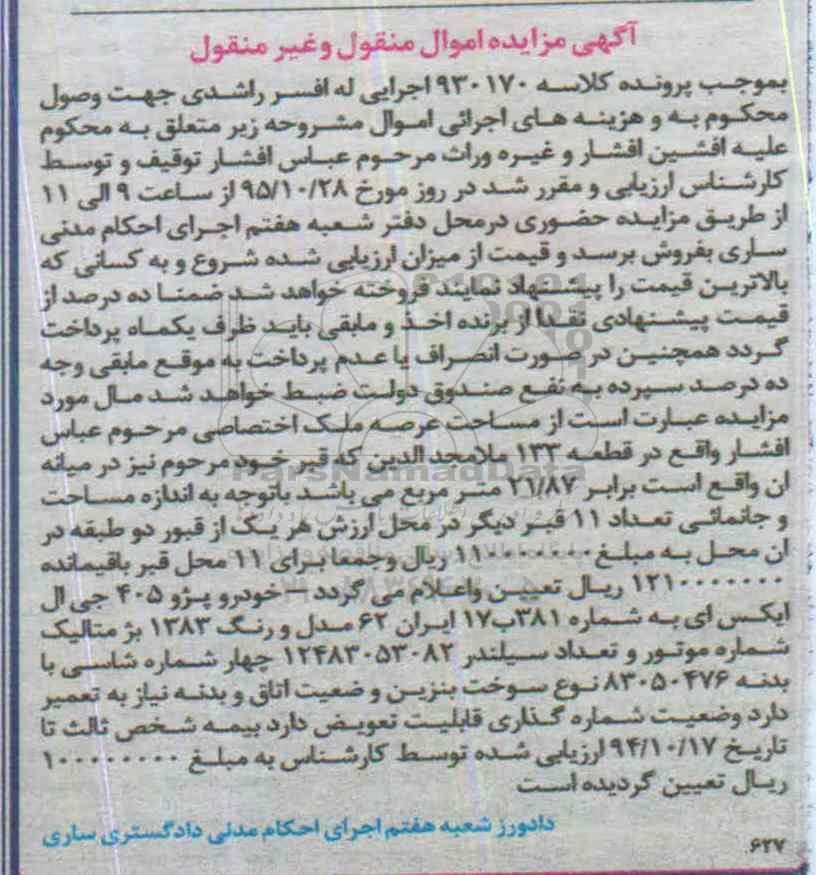 آگهی مزایده اموال منقول وغیر منقول
بموجب پرونده کلاسه ۹۳۰۱۷۰ اجرایی له افسر راشدی جهت وصول
محکوم به و هزینه های اجرائی اموال مشروحه زیر متعلق به محکوم
علیه افشین افشار و غیره وراث مرحوم عباس افشار توقیف و توسط
کارشناس ارزیابی و مقرر شد در روز مورخ ۹۵/۱۰/۲۸ از ساعت ۹ الی ۱۱
از طریق مزایده حضوری درمحل دفتر شعبه هفتم اجرای احکام مدنی
ساری بفروش برسد و قیمت از میزان ارزیابی شده شروع و به کسانی که
بالاترین قیمت را پیشنهاد نمایند فروخته خواهد شد ضمنا ده درصد از
قیمت پیشنهادی نقدا از برنده اخذ و مابقی باید ظرف یکماه پرداخت
گردد همچنین در صورت انصراف یا عدم پرداخت به موقع مابقی وجه
ده درصد سپرده به نفع صندوق دولت ضبط خواهد شد مال مورد
مزایده عبارت است از مساحت عرصه ملک اختصاصی مرحوم عباس
افشار واقع در قطعه ۱۳۳ ملامجد الدین که قبر خود مرحوم نیز در میانه
ان واقع است برابر ۲۱/۸۷ متر مربع می باشد باتوجه به اندازه مساحت
و جانمائی تعداد ۱۱ قبر دیگر در محل ارزش هر یک از قبور دو طبقه در
ان محل به مبلغ ۱۱۰۰۰۰۰۰۰ ریال وجمعا برای ۱۱ محل قبر باقیمانده
۱۲۱۰۰۰۰۰۰۰ ریال تعیین واعلام می گردد –خودرو پژو ۴۰۵ جی ال
ایکس ای به شماره ۳۸۱ب۱۷ ایران ۶۲ مدل و رنگ ۱۳۸۳ بژ متالیک
شماره موتور و تعداد سیلندر ۱۲۴۸۳۰۵۳۰۸۲ چهار شماره شاسی با
بدنه ۸۳۰۵۰۴۷۶ نوع سوخت بنزین و ضعیت اتاق و بدنه نیاز به تعمیر
دارد وضعیت شماره گذاری قابلیت تعویض دارد بیمه شخص ثالث تا
تاریخ ۹۴/۱۰/۱۷ ارزیابی شده توسط کارشناس به مبلغ ۱۰۰۰۰۰۰۰۰
ریال تعیین گردیده است
دادورز شعبه هفتم اجرای احکام مدنی دادگستری ساری
۶۲۷
ParsNamadData